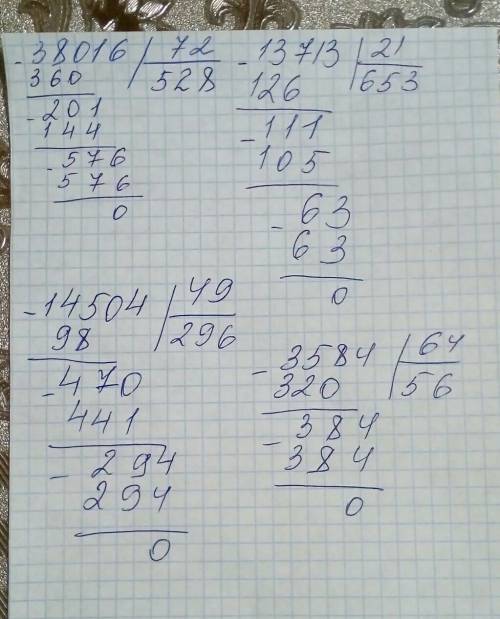 -38016 | 72
360 | 528
-201
144
-576
576
0
-13713 | 21
126 | 653
-111
105
-63
63
0
-14504 | 49
98 | 296
-470
441
-294
294
0
-3584 | 64
320 | 56
-384
384
0